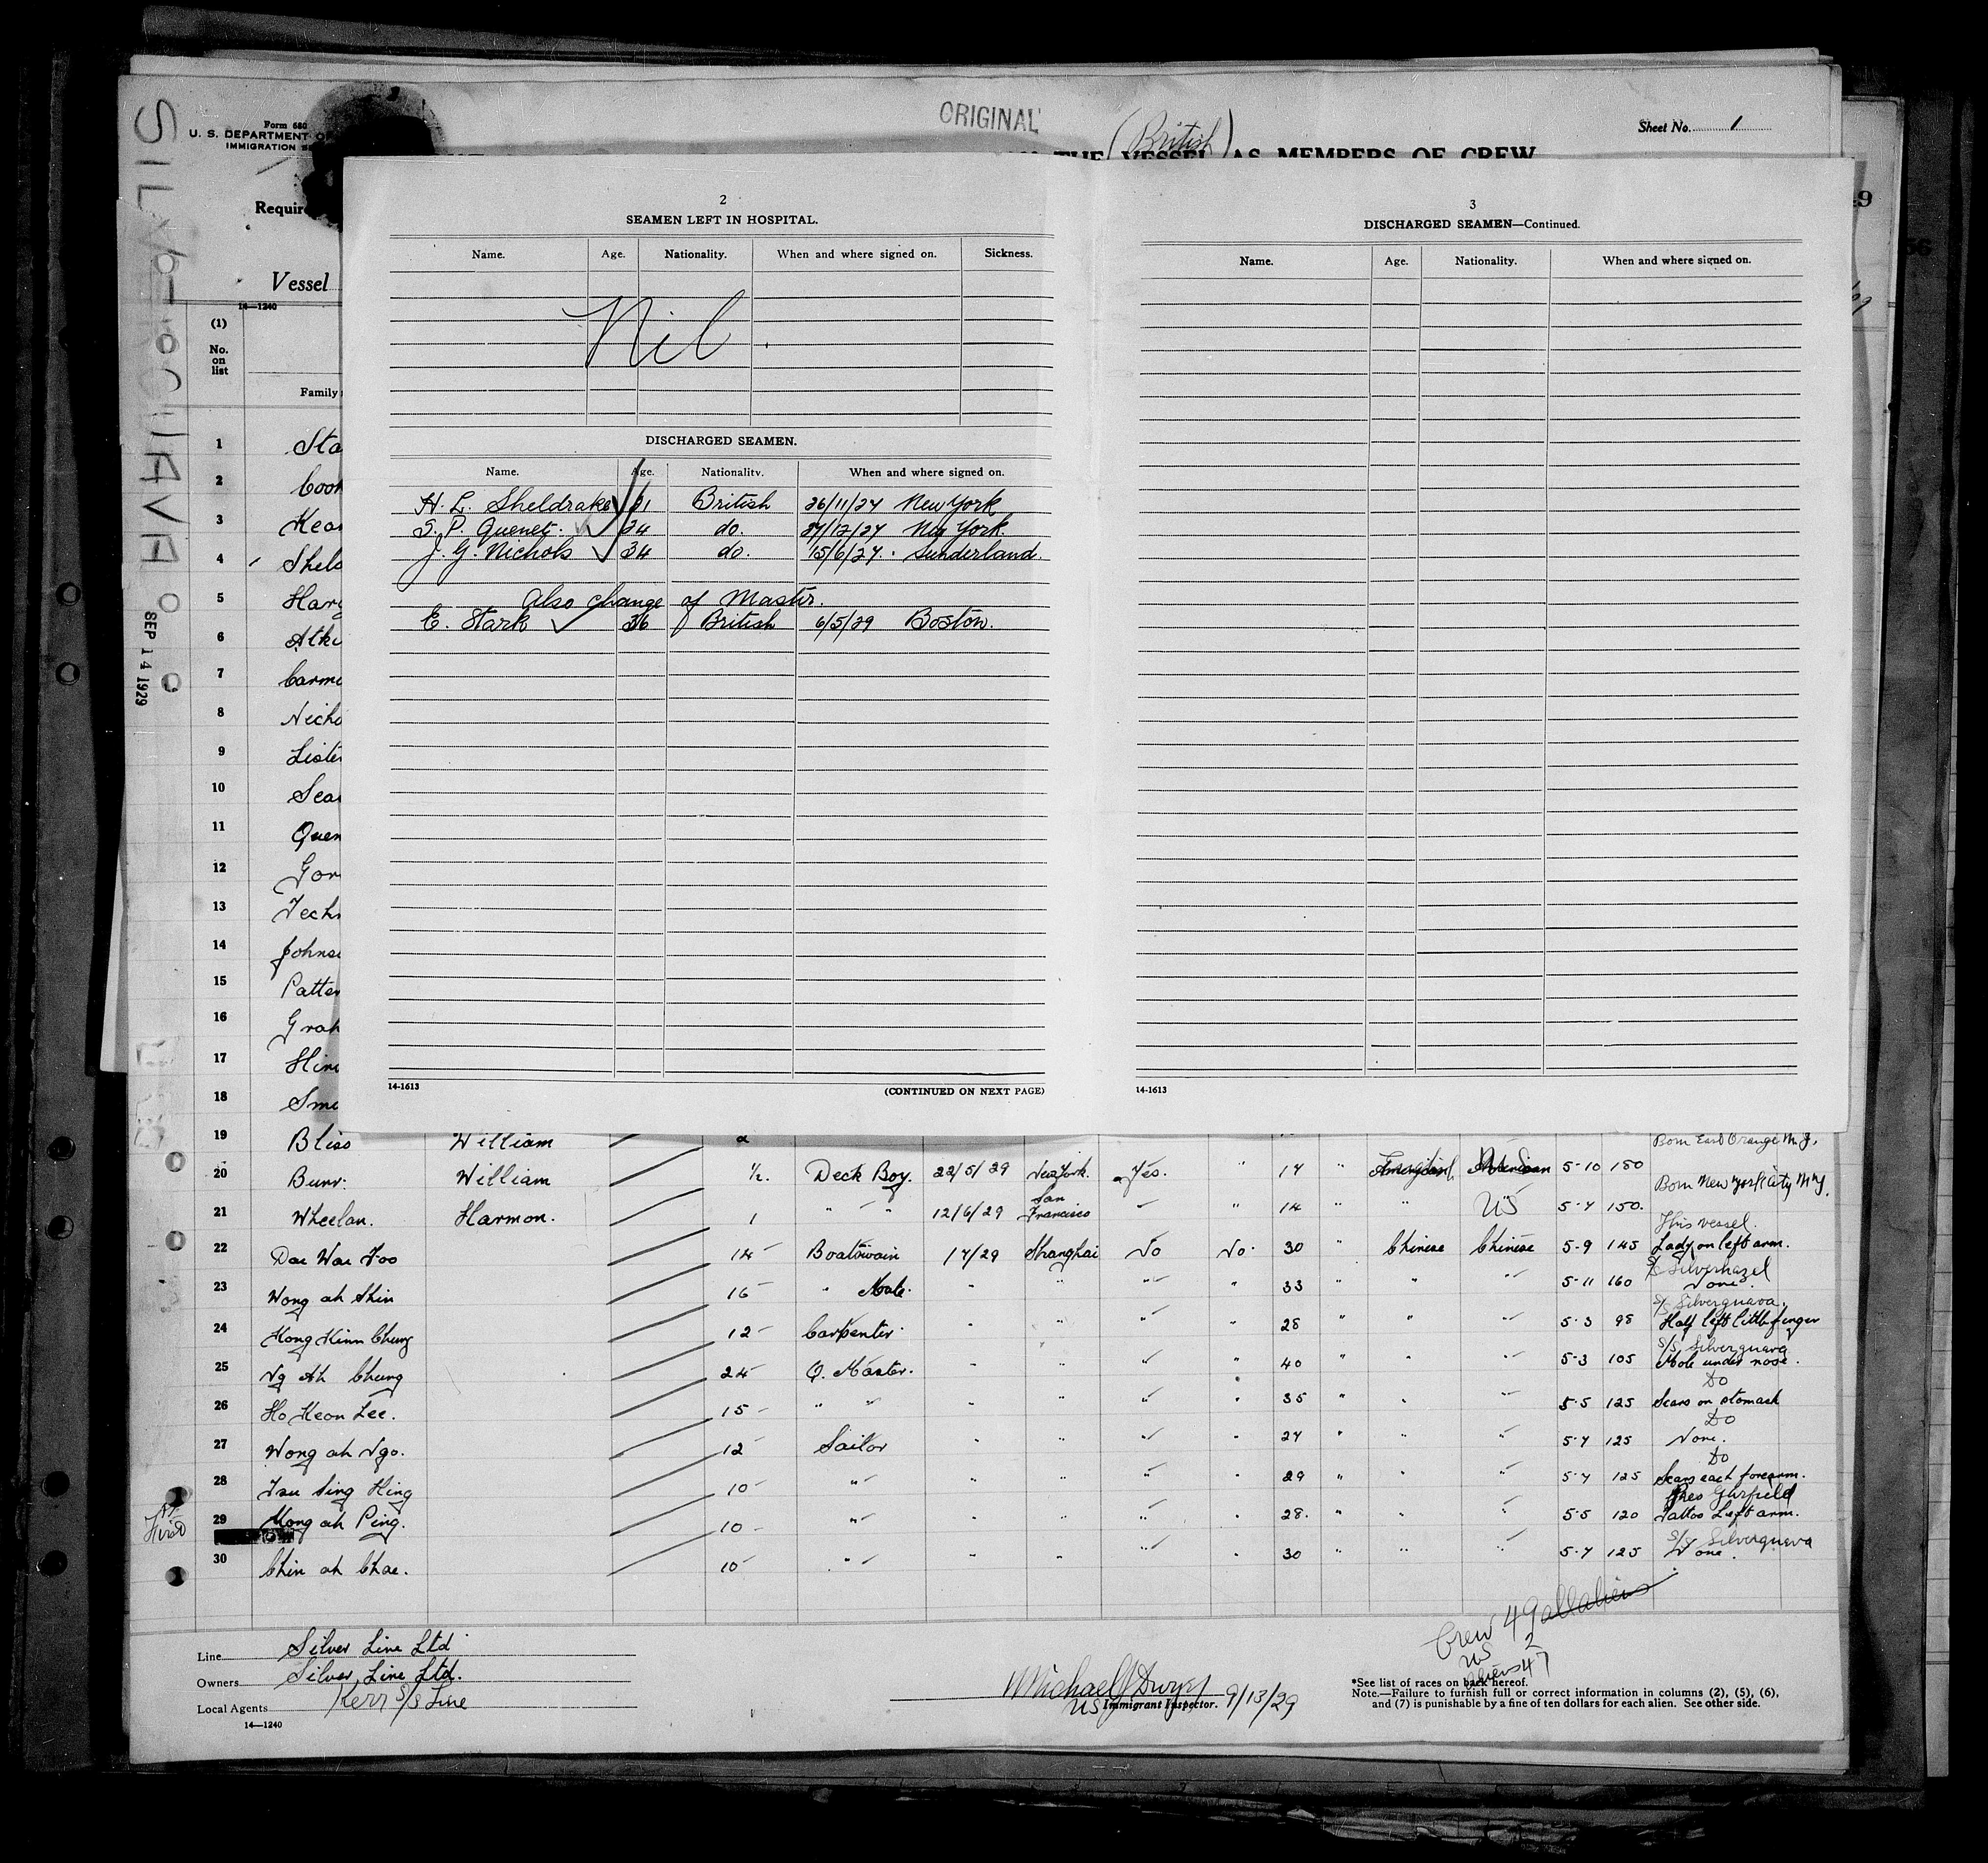 ORIGINAL
(British)
Sheet No. 1
Form 680
U. S. DEPARTMENT OF
IMMIGRATION SE
THE VESSEL AS MEMBERS OF CREW
Requir
Vessel
14—1240
(1)
No.
on
list
Family
SEP 14 1929
2
SEAMEN LEFT IN HOSPITAL.
Name. Age. Nationality. When and where signed on. Sickness.
Nil
DISCHARGED SEAMEN.
Name. Age. Nationality. When and where signed on.
H. L. Sheldrake 21 British 26/11/27 New York
S. P. Quenet. 24 do. 27/12/27 New York.
J. G. Nichols 34 do. 15/6/27. Sunderland.
Also change of Master.
E. Stark 36 British 6/5/29 Boston.
14-1613
(CONTINUED ON NEXT PAGE)
3
DISCHARGED SEAMEN—Continued.
Name. Age. Nationality. When and where signed on.
14-1613
1 Sta
2 Coo
3 Kea
4 Shel
5 Har
6 Atki
7 Carm
8 Nich
9 Liste
10 Sea
11 Quen
12 Gor
13 Tech
14 Johns
15 Patte
16 Gra
17 Hin
18 Sm
19 Bliss William Born East Orange N.J.
20 Burr. William ½. Deck Boy. 22/5/29 New York. Yes. " 17 " 5-10 150
Born New York City N.Y.
21 Wheelan. Harmon. 1 " " 12/6/29 San Francisco " 14 " " US 5-7 150.
This vessel.
22 Dae Wae Foo 14 Boatswain 1/7/29 Shanghai No No. 30 " Chinese Chinese 5-9 145 Lady on left arm.
S/S Silverhazel
23 Wong ah Shin 16 " Mate. " " " " 33 " " " 5-11 160 None.
S/S Silverguava.
24 Hong Kinn Chung 12 Carpenter. " " " " 28 " " " 5-3 98 Half left little finger
S/S Silverguava
25 Ng Ah Chung 24 Q. Master. " " " " 40 " " " 5-3 105 Mole under nose.
Do
26 Ho Keon Lee. 15 " " " " " " 35 " " " 5-5 125 Scars on stomach
Do
27 Wong ah Ngo. 12 Sailor " " " " 27 " " " 5-7 125 None.
Do
28 Tau Sing Hing 10 " " " " " 29 " " " 5-7 125 Scars each forearm.
Pres Garfield
29 Mong ah Ping. 10 " " " " " 28. " " " 5-5 120 Tattoo Left arm.
S/S Silverguava
30 Chin ah Chae. 10 " " " " " 30 " " " 5-7 125 None.
Crew 49 all aliens
US 2
Aliens 47
Line Silver Line Ltd
Owners Silver Line Ltd.
Local Agents Kerr S/S Line
14—1240
Michael J Dwyer
US Immigrant Inspector. 9/13/29
*See list of races on back hereof.
Note.—Failure to furnish full or correct information in columns (2), (5), (6),
and (7) is punishable by a fine of ten dollars for each alien. See other side.